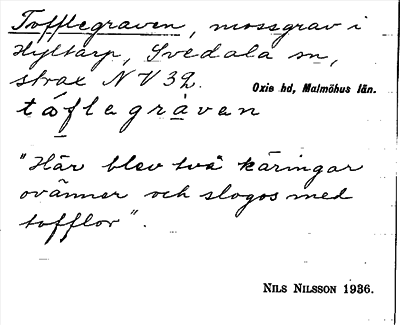 Tofflegraven, mossgrav i
Hyltarp, Svedala sn,
strax NV 32.
Oxie hd, Malmöhus län.
táflegràven
"Här blev två käringar
ovänner och slogos med
tofflor".
NILS NILSSON 1936.